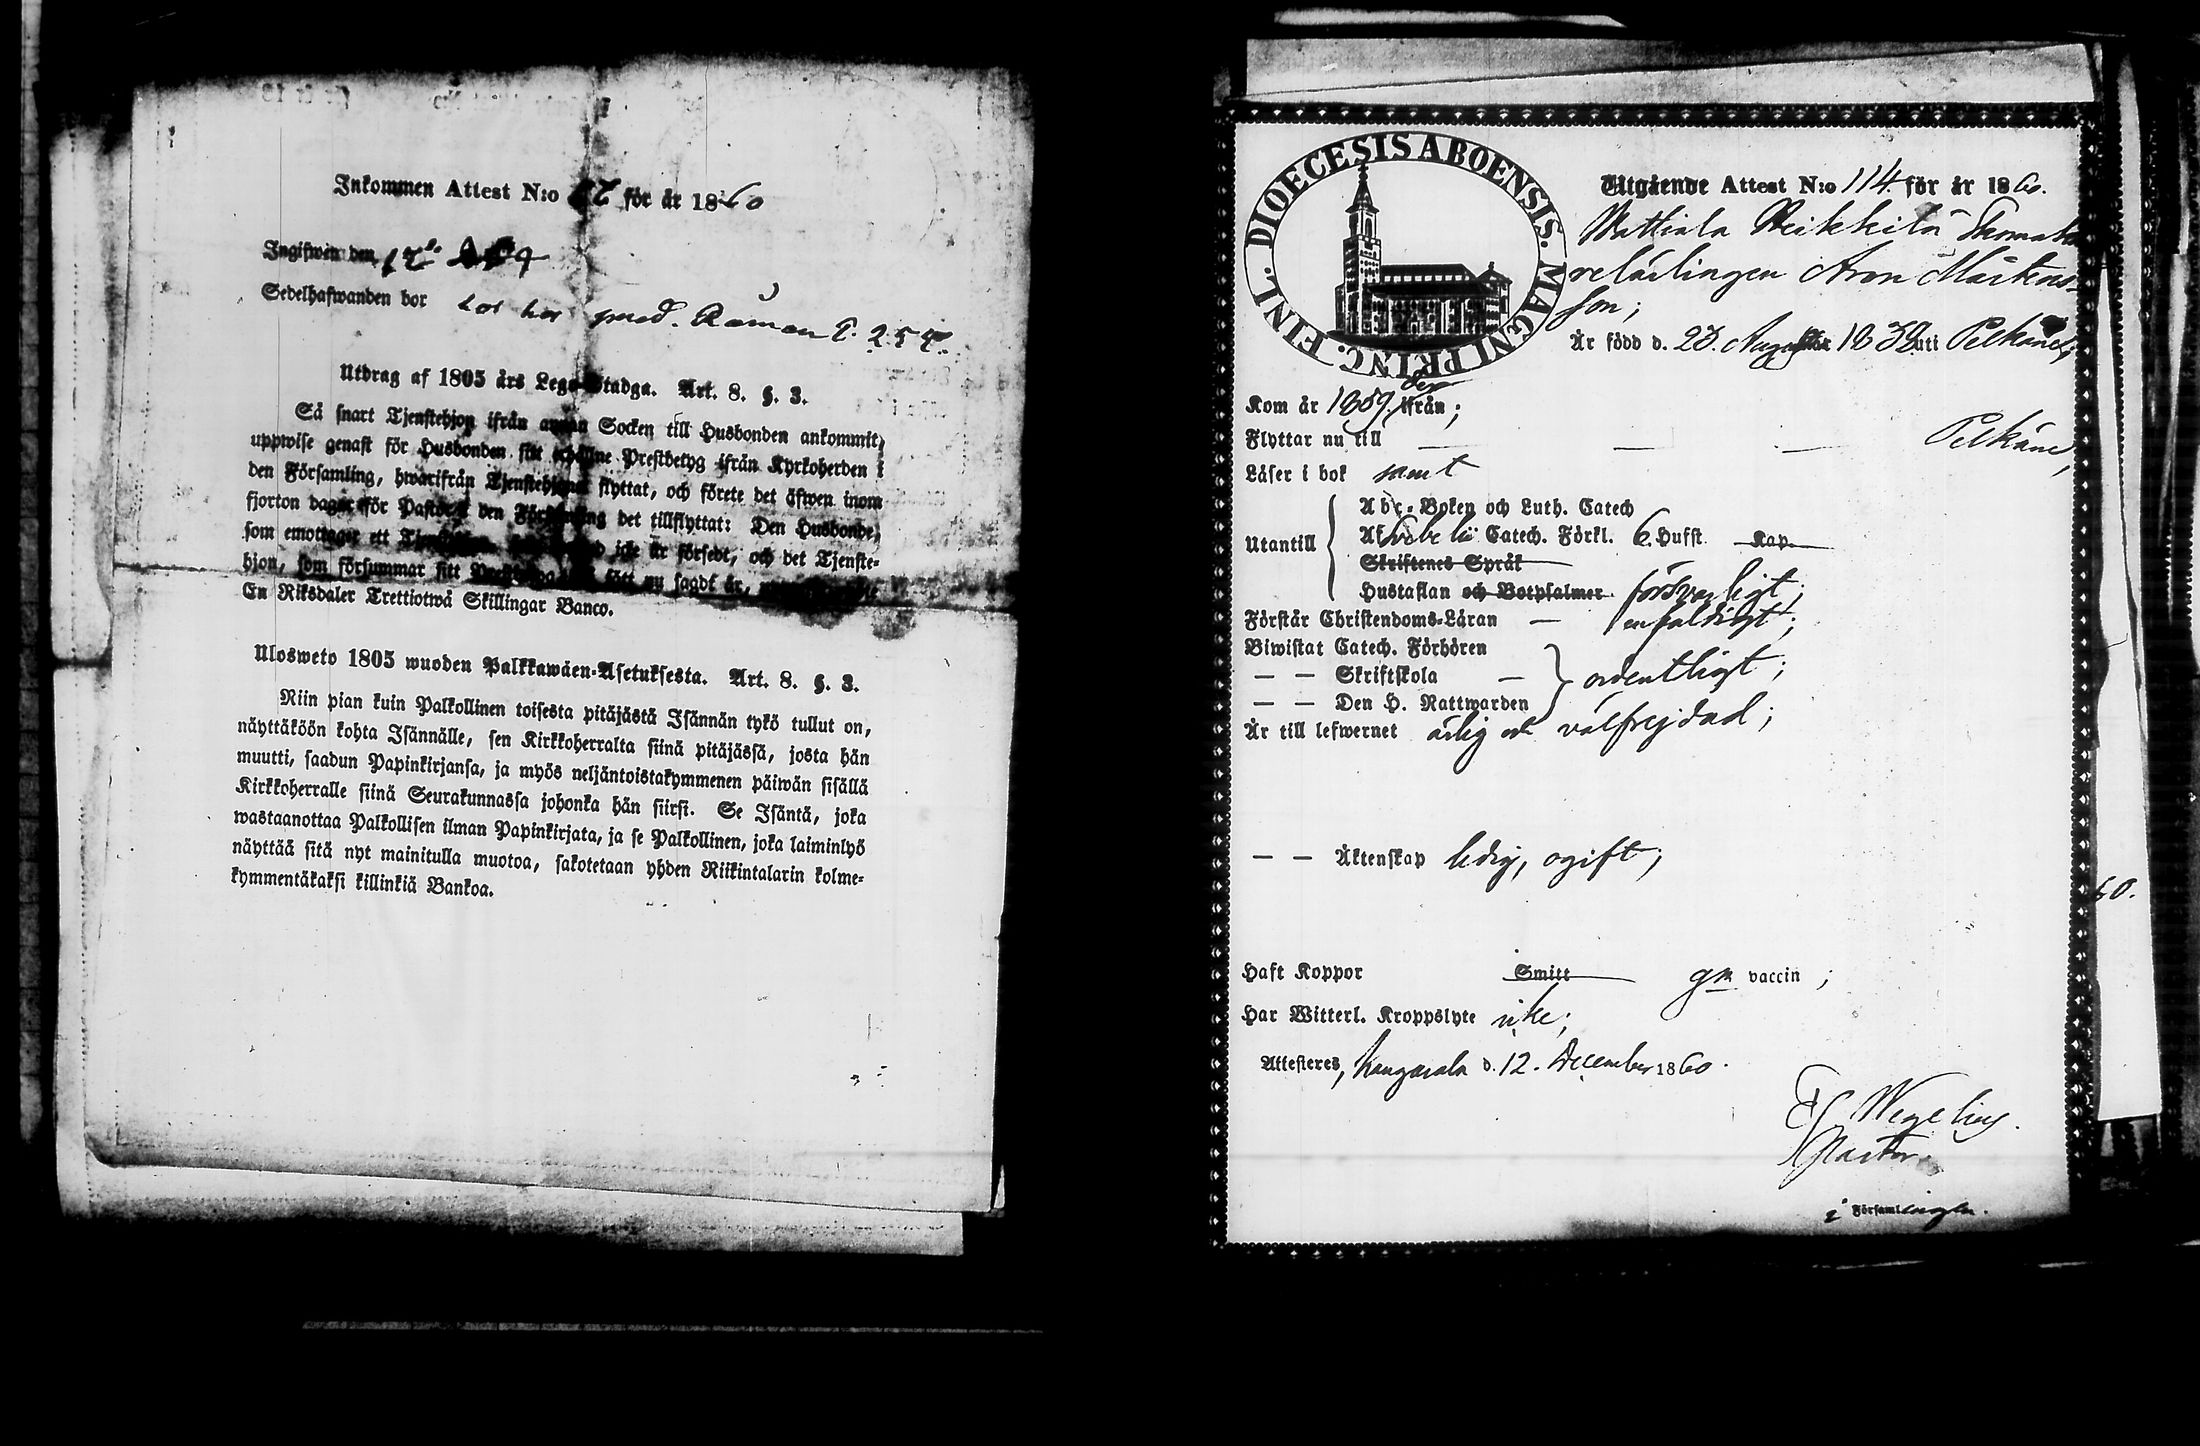 Inkommen Attest N:o för år 1860
Ingifwen den
Sedelhafwanden bor hos
Utdrag af 1805 års Lego-Stadga. Art. 8. §. 3.
Så snart Tjenstehjon ifrån annan Socken till Husbonden ankommit,
uppwise genast för Husbonden sitt Prestbetyg ifrån Kyrkoherden i
den Församling, hwarifrån flyttat, och förete det äfwen inom
fjorton dagar för Pastor i den Församling det tillflyttat: Den Husbonde,
som emottager ett icke är försedt, och det Tjenste-
hjon, som försummar sitt nu sagdt är,
En Riksdaler Trettiotwå Skillingar Banco.
Ulosweto 1805 wuoden Palkkawäen-Asetuksesta. Art. 8. §. 3.
Niin pian kuin Palkollinen toisesta pitäjästä Isännän tykö tullut on,
näyttäköön kohta Isännälle, sen Kirkkoherralta siinä pitäjässä, josta hän
muutti, saadun Papinkirjansa, ja myös neljäntoistakymmenen päiwän sisällä
Kirkkoherralle siinä Seurakunnassa johonka hän siirsi. Se Isäntä, joka
wastaanottaa Palkollisen ilman Papinkirjata, ja se Palkollinen, joka laiminlyö
näyttää sitä nyt mainitulla muotoa, sakotetaan yhden Riikintalarin kolme-
kymmentäkaksi killinkiä Bankoa.
DIOECESIS ABOENSIS. MAGNI PRINC. FINL.
Utgående Attest N:o 114 för år 1860.
Mattiala Heikkilä
Aron Mårtens-
son;
Är född d. 23. Augusti 1839 uti Pelkäne,
Kom år 1859 ifrån der;
Flyttar nu till — — — Pelkäne,
Läser i bok samt
Utantill
Abc-Boken och Luth. Catech
Catech. Förkl. 6. Hufst Kap.
Skriftenes Språk
Hustaflan och Botpsalmer försvarligt;
Förstår Christendoms-Läran — enfaldigt;
Biwistat Catech. Förhören
— — Skriftskola —
— — Den H. Nattwarden
ordentligt;
Är till lefwernet ärlig och välfrejdad;
— — Äktenskap ledig, ogift;
Haft Koppor Smitt gm vaccin;
Har Witterl. Kroppslyte icke;
Attesteres, Kangasala d. 12. December 1860.
Wegelius.
Pastor.
i Församlingen.
60.